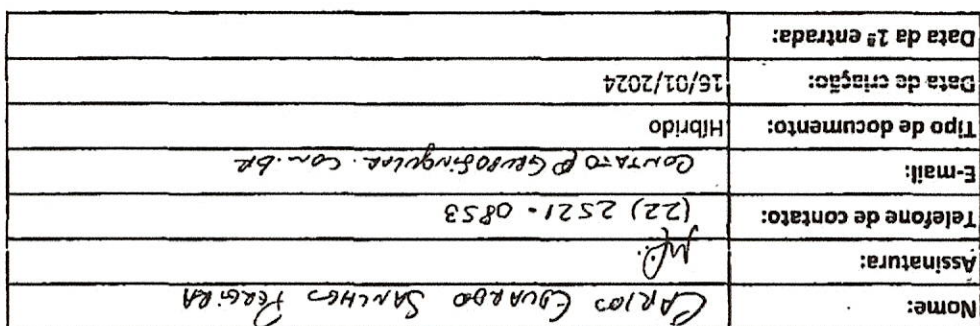 Nome: CARLOS EDUARDO SANCHES PEREIRA
Assinatura:
Telefone de contato: (22) 2521-0853
E-mail: CONTATO@GRUPOSINGULAR.COM.BR
Tipo de documento: Híbrido
Data de criação: 15/01/2024
Data da 1ª entrada: